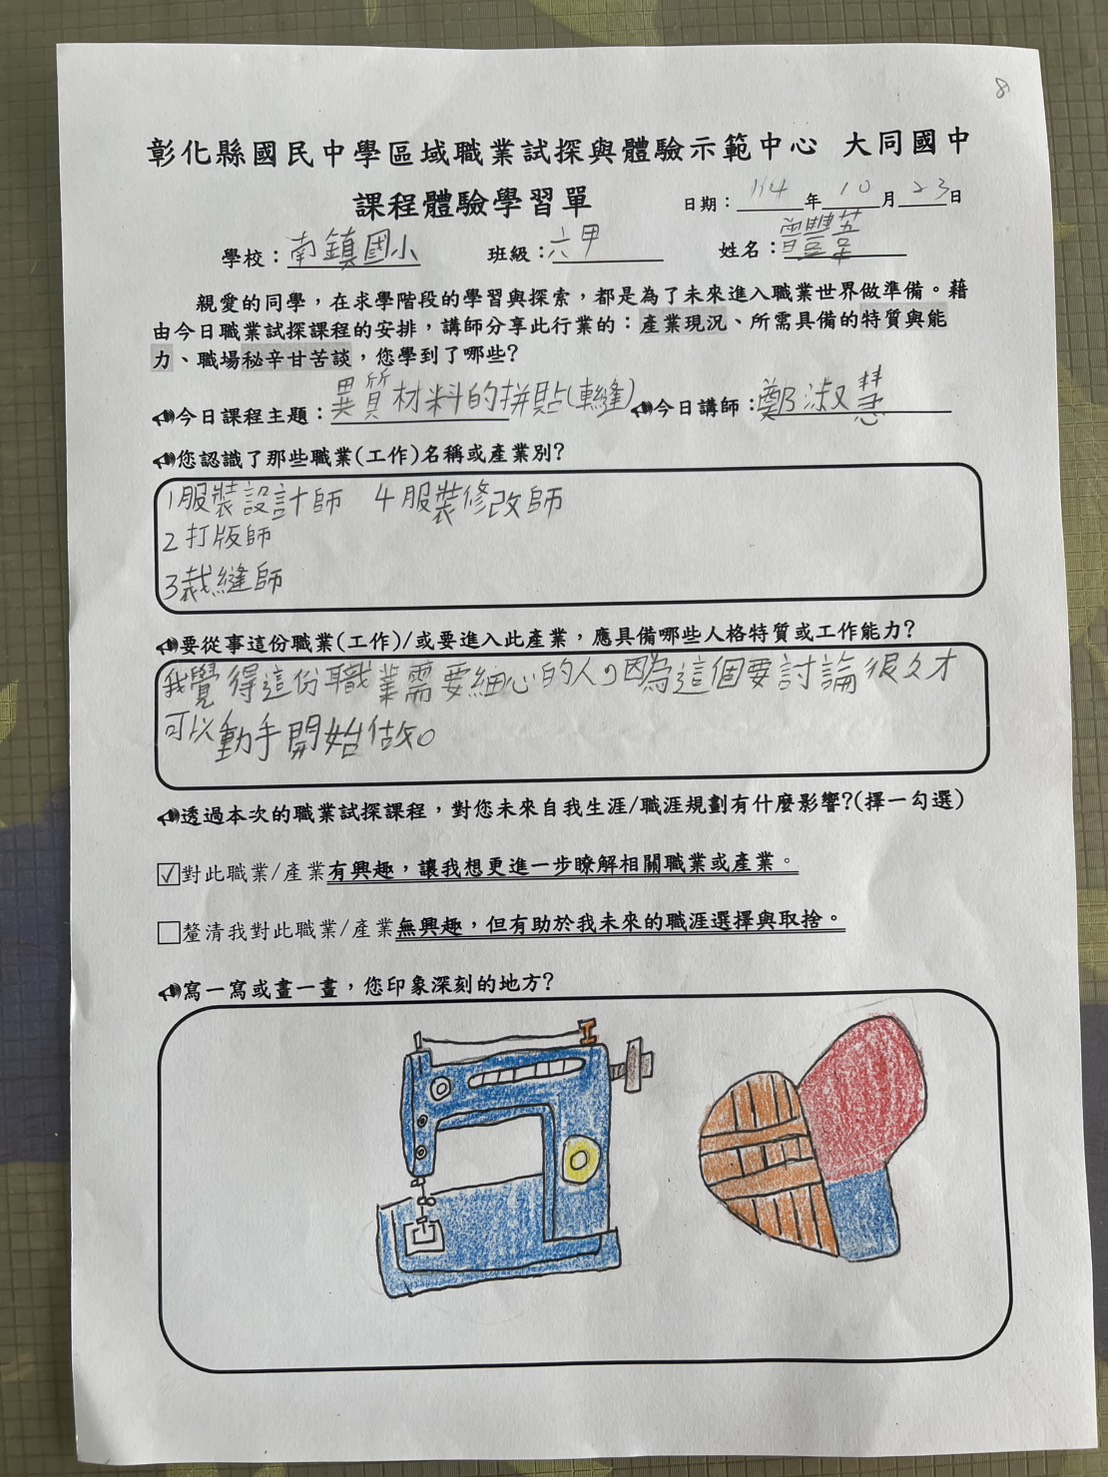 8
彰化縣國民中學區域職業試探與體驗示範中心 大同國中
課程體驗學習單
日期：114年10月23日
學校：南鎮國小 班級：六甲 姓名：曾豐
親愛的同學，在求學階段的學習與探索，都是為了未來進入職業世界做準備。藉
由今日職業試探課程的安排，講師分享此行業的：產業現況、所需具備的特質與能
力、職場秘辛甘苦談，您學到了哪些？
今日課程主題：異質材料的拼貼(車縫) 今日講師：鄭淑慧
您認識了那些職業(工作)名稱或產業別？
1服裝設計師 4服裝修改師
2打版師
3裁縫師
要從事這份職業(工作)/或要進入此產業，應具備哪些人格特質或工作能力？
我覺得這份職業需要細心的人，因為這個要討論很久才
可以動手開始做。
透過本次的職業試探課程，對您未來自我生涯/職涯規劃有什麼影響?(擇一勾選)
☑對此職業/產業有興趣，讓我想更進一步瞭解相關職業或產業。
☐釐清我對此職業/產業無興趣，但有助於我未來的職涯選擇與取捨。
寫一寫或畫一畫，您印象深刻的地方？